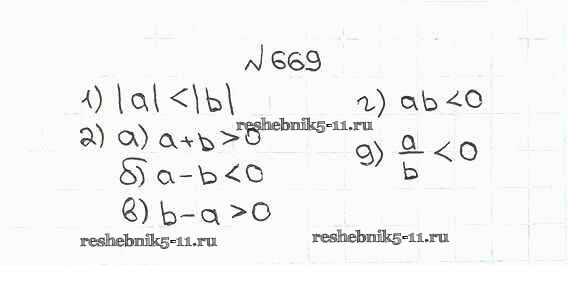 № 669
1) |a| < |b|
2) а) a + b > 0
б) a - b < 0
в) b - a > 0
г) ab < 0
д) a/b < 0
reshebnik5-11.ru
reshebnik5-11.ru
reshebnik5-11.ru